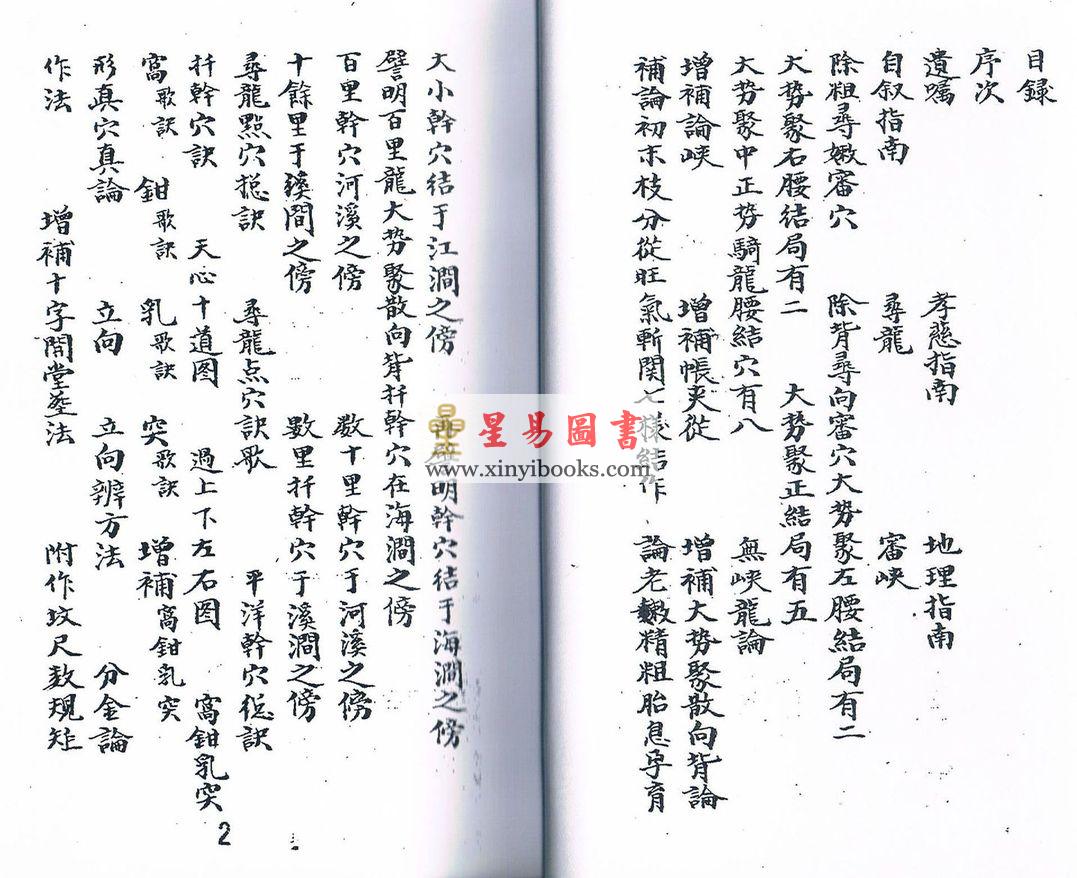 目録
序次
遺嘱 孝慈指南 地理指南
自叙指南 尋龍 審峡
除粗尋嫩審穴 除背尋向審穴大势聚左腰結局有二
大势聚右腰結局有二 大势聚正結局有五
大势聚中正势騎龍腰結穴有八 無峡龍論
增補論峡 增補帳夹從 增補大势聚散向背論
補論初末枝分從旺氣斬関七樣結作 論老嫩精粗胎息孕育
大小幹穴结于江澗之傍 明幹穴结于海澗之傍
譬明百里龍大势聚散向背扦幹穴在海澗之傍
百里幹穴河溪之傍 数十里幹穴于河溪之傍
十餘里于溪澗之傍 數里扦幹穴于溪澗之傍
尋龍點穴捴訣 尋龍点穴訣歌 平洋幹穴捴訣
扦幹穴訣 天心十道图 過上下左右图 窩鉗乳突
窩歌訣 鉗歌訣 乳歌訣 突歌訣 增補窩鉗乳突
形真穴真論 立向 立向辨方法 分金論
作法 增補十字開堂塋法 附作坟尺数規矩
2
星易圖書
www.xinyibooks.com